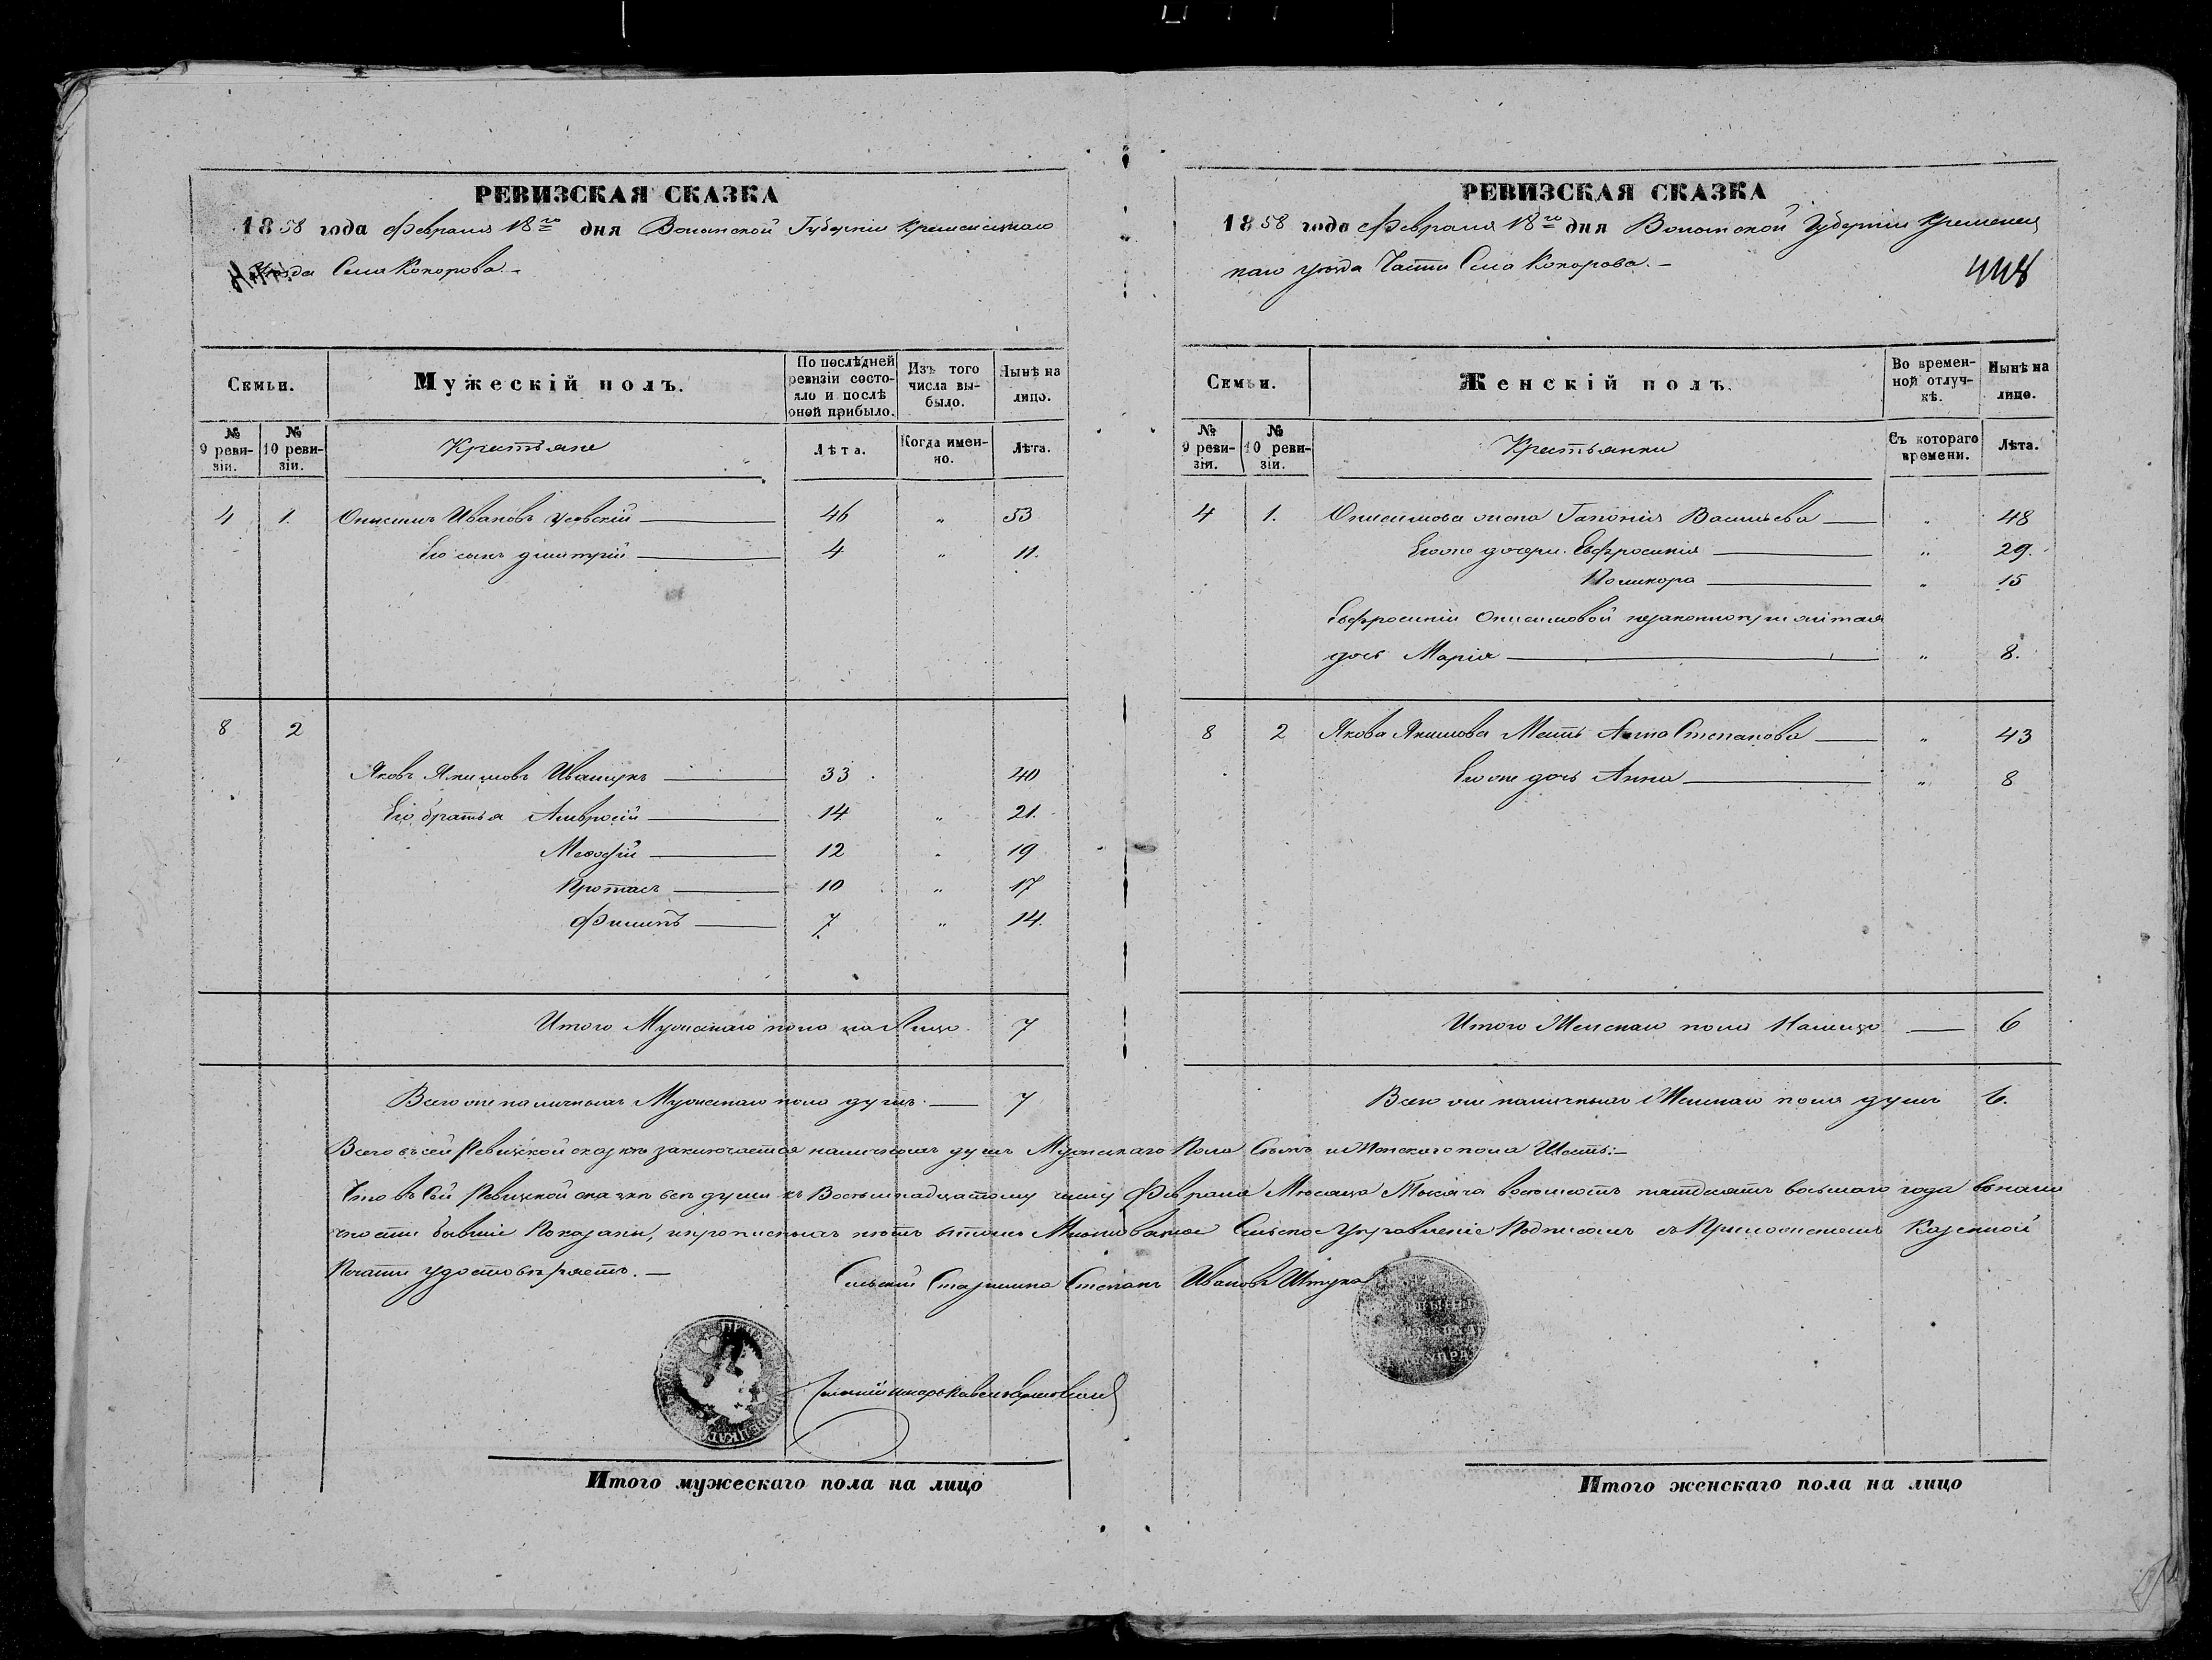 РЕВИЗСКАЯ СКАЗКА
1858 года Февраля 18го дня Волынской Губерніи Кременецкаго
уѣзда Села Кокорова.-
Семьи.
Мужескій полъ.
По послѣдней ревизіи состояло и послѣ оной прибыло.
Изъ того числа выбыло.
Нынѣ на лицо.
№ 9 ревизіи.
№ 10 ревизіи.
Крестьяне
Лѣта.
Когда именно.
Лѣта.
4 1. Онисимъ Ивановъ 46 " 53
Его сынъ Дмитрій 4 " 11.
8 2
Яковъ Якимовъ Иващукъ 33 40
Его братья Амвросій 14 " 21.
Меѳодій 12 " 19
Протасъ 10 " 17
Филипъ 7 " 14.
Итого Мужескаго пола на Лицо. 7
Всего же наличныхъ Мужескаго пола душъ. 7
РЕВИЗСКАЯ СКАЗКА
1858 года Февраля 18го дня Волынской Губерніи Кременец
каго уѣзда Части Села Кокорова.-
448
Семьи.
Женскій полъ.
Во временной отлучкѣ.
Нынѣ на лицо.
№ 9 ревизіи.
№ 10 ревизіи.
Крестьянки
Съ котораго времени.
Лѣта.
4 1. Онисимова жена Гапонія Васильева " 48
Егоже дочери Евфросинія " 29.
Поликора " 15
Евфросиніи Онисимовой незаконноприжитая
дочь Марія " 8.
8 2 Якова Якимова Мать Анна Степанова " 43
Егоже дочь Анна " 8
Итого Женскаго пола Налицо 6
Всего же наличныхъ Женскаго пола душъ 6.
Всего въ сей Ревизской сказкѣ заключается наличныхъ душъ Мужескаго Пола Семь и Женскаго пола Шесть:-
Что въ Сей Ревизской сказкѣ всѣ души къ Восемьнадцатому числу Февраля Мѣсяца Тысяча восемьсотъ пятдесятъ восьмаго года въ налич
ности бывшіе Показаны, и прописныхъ нѣтъ въ томъ Сельское Управленіе Подписомъ съ Приложеніемъ Казенной
Печати удостовѣряетъ.-
Сельскій Старшина Степанъ Ивановъ Штука
Итого мужескаго пола на лицо
Итого женскаго пола на лицо